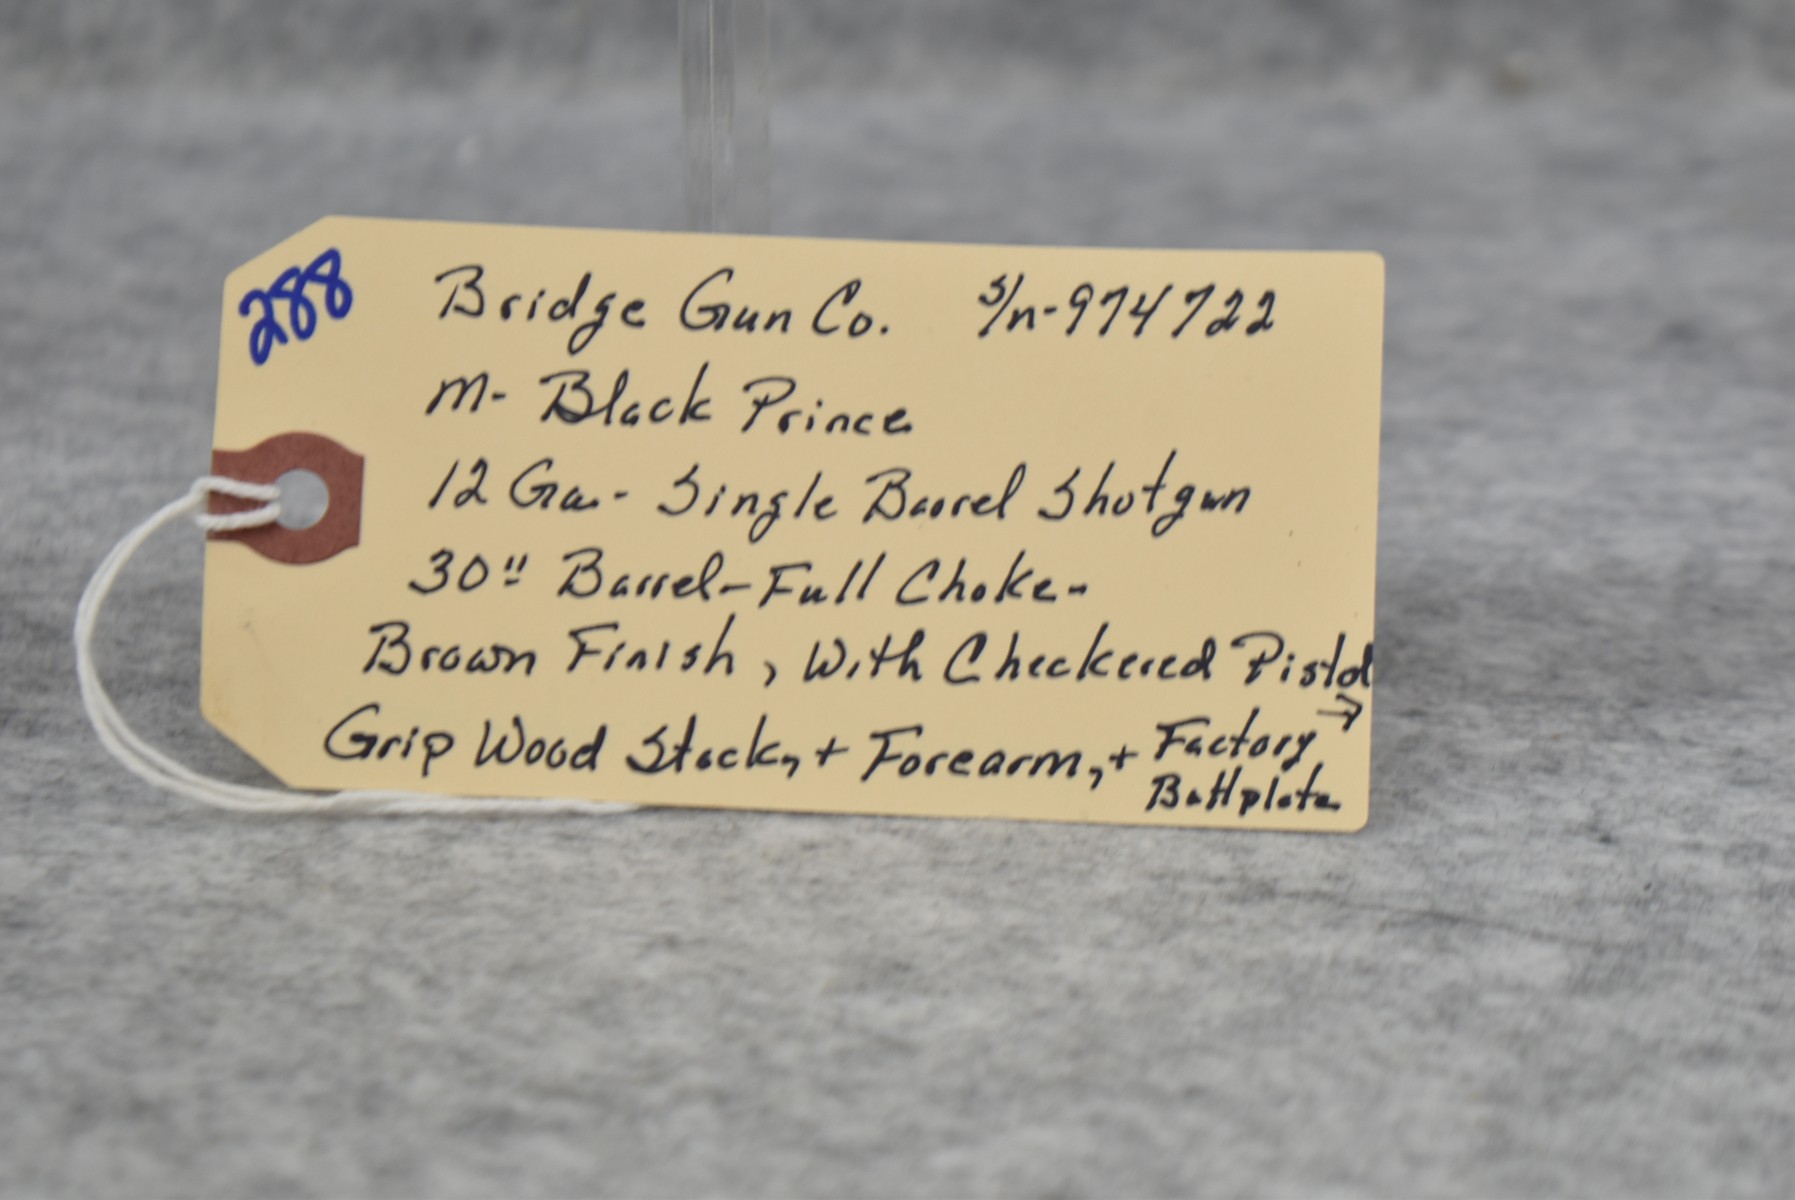 288
Bridge Gun Co. S/n-974722
M- Black Prince
12 Ga.- Single Barrel Shotgun
30" Barrel-Full Choke-
Brown Finish, With Checkered Pistol
→
Grip Wood Stock, + Forearm, + Factory
Buttplate